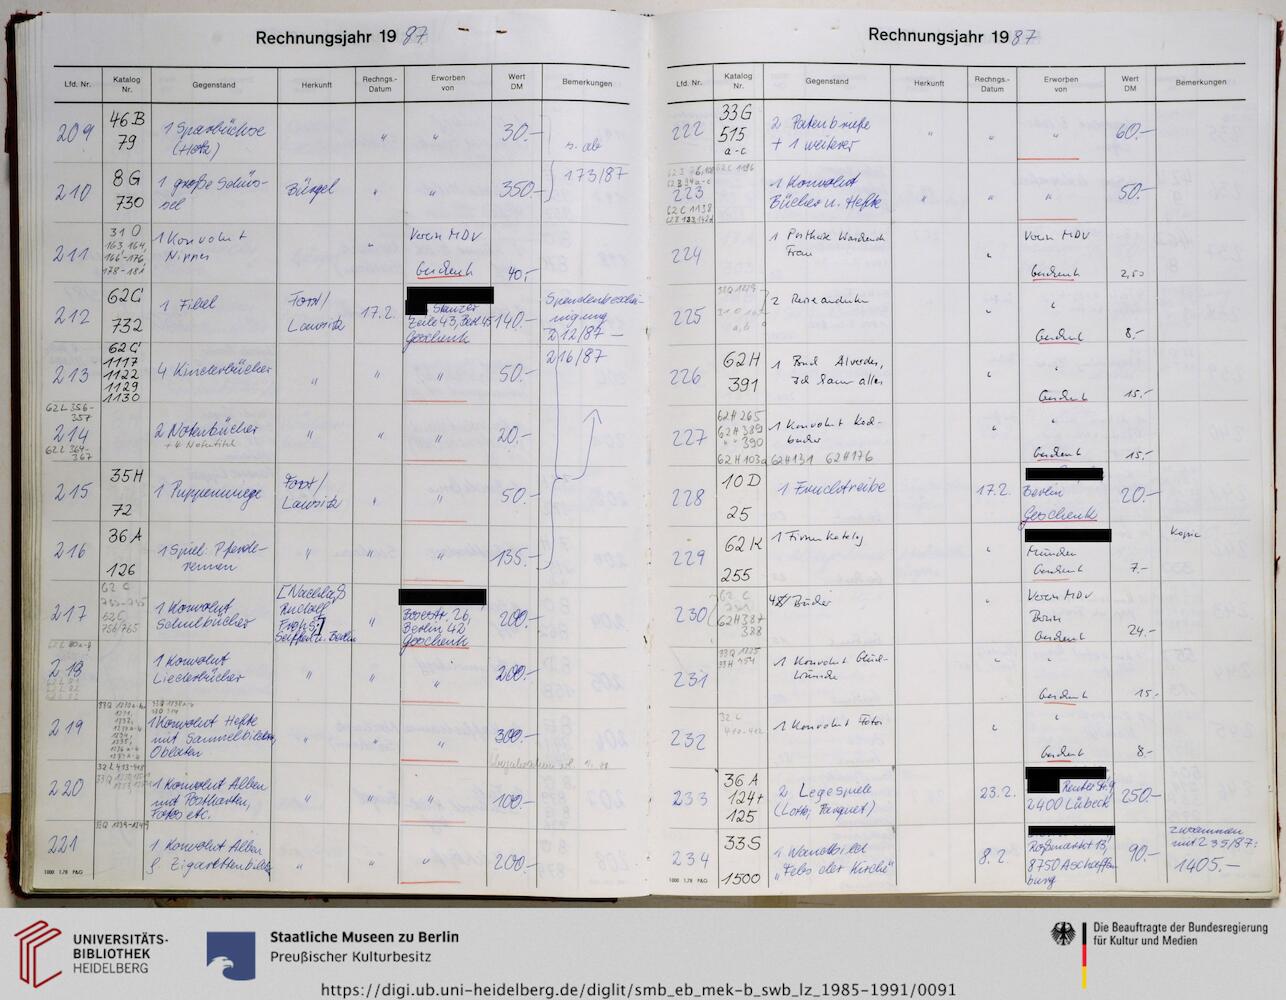 Rechnungsjahr 1987
Lfd. Nr. Katalog Nr. Gegenstand Herkunft Rechngs.-Datum Erworben von Wert DM Bemerkungen
209 46 B 79 1 Sparbüchse (Holz) " " 30.-
210 8 G 730 1 große Schüssel Bürgel " " 350.- 173/87
211 31 O 163 164, 166-176, 178-181 1 Konvolut Nippes " Verein MDV Geschenk 40,-
212 62 G 732 1 Fibel Forst/ Lausitz 17.2. Zeile 43, Berl. 45 Geschenk 140.- Spendenbescheinigung 212/87 -
213 62 G 1117 1122 1129 1130 4 Kinderbücher " " " 50.- 216/87
214 62 L 356-357 62 L 364-367 2 Notenbücher + 4 Notentitel " " " 20.-
215 35 H 72 1 Puppenwiege Forst/ Lausitz " " 50.-
216 36 A 126 1 Spiel: Pferderennen " " " 135.-
217 62 C 756/765 1 Konvolut Schulbücher [Nachlaß Rudolf Seiffen u. Berlin " Berlin 42 Geschenk 200.-
218 1 Konvolut Liederbücher " " " 200.-
219 1 Konvolut Hefte mit Sammelbildern, Oblaten " " " 300.-
220 1 Konvolut Alben mit Postkarten, Fotos etc. " " " 100.-
221 33 Q 1239-1249 1 Konvolut Alben f. Zigarettenbilder " " " 200.-
1000 1.78 P&G
Rechnungsjahr 1987
Lfd. Nr. Katalog Nr. Gegenstand Herkunft Rechngs.-Datum Erworben von Wert DM Bemerkungen
222 33 G 515 a-c 2 Patenbriefe + 1 weiterer " " " 60.-
223 62 C 1138 1 Konvolut Bücher u. Hefte " " " 50.-
224 1 Postkarte Frau " Verein MDV Geschenk 2,50
225 2 Reiseandenken " " Geschenk 8,-
226 62 H 391 1 Band Alverdes, " " Geschenk 15.-
227 62 H 265 62 H 389 " " 390 62 H 103a 62 H 131 62 H 176 1 Konvolut Kochbücher " " Geschenk 15,-
228 10 D 25 1 Fruchtreibe 17.2. Berlin Geschenk 20.-
229 62 K 255 1 Firmenkatalog " München Geschenk 7.- Kopie
230 62 C 62 H 387 388 Bücher " Verein MDV Berlin Geschenk 24.-
231 33 Q 1225 33 H 454 1 Konvolut Glückwünsche " " Geschenk 15.-
232 32 C 1 Konvolut Fotos " " Geschenk 8.-
233 36 A 124+ 125 2 Legespiele (Lotto, Parquet) 23.2. 2400 Lübeck 250.-
234 33 S 1500 1 Wandbild "Fels der Kirche" 8.2. Roßmarkt 13, 8750 Aschaffenburg 90.- zusammen mit 235/87: 1405.-
1000 1.78 P&G
UNIVERSITÄTS-
BIBLIOTHEK
HEIDELBERG
Staatliche Museen zu Berlin
Preußischer Kulturbesitz
Die Beauftragte der Bundesregierung
für Kultur und Medien
https://digi.ub.uni-heidelberg.de/diglit/smb_eb_mek-b_swb_lz_1985-1991/0091